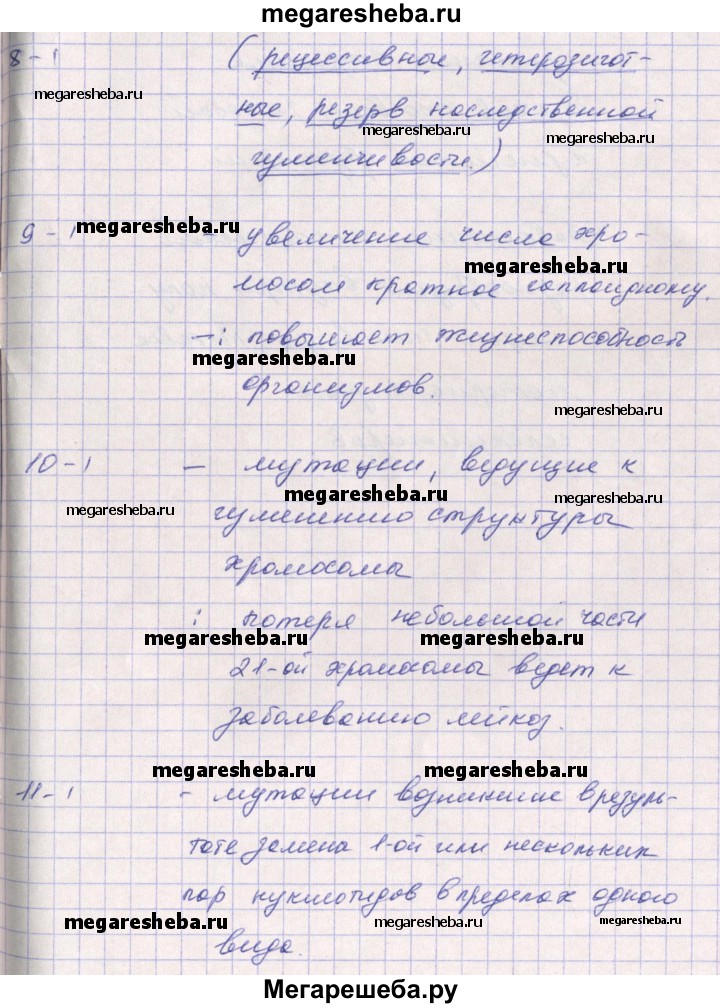 megaresheba.ru
8-1 (рецессивные, гетерозигот-
megaresheba.ru
ные, резерв наследственной
megaresheba.ru megaresheba.ru
гуменчивости.)
9-1 - увеличение числа хро-
megaresheba.ru megaresheba.ru
мосом кратное гаплоидному.
-: повышает жизнеспособность
megaresheba.ru
организмов.
megaresheba.ru
10-1 - мутации, ведущие к
megaresheba.ru megaresheba.ru megaresheba.ru
гуменению структуры
хромосомы
: потеря небольшой части
megaresheba.ru megaresheba.ru
21-ой хромосомы ведет к
заболеванию лейкоз.
megaresheba.ru megaresheba.ru
11-1 - мутации возникшие в резуль-
тате замена 1-ой или нескольких
пар нуклиотидов в пределах одного
megaresheba.ru megaresheba.ru megaresheba.ru
вида.
Мегарешеба.ру